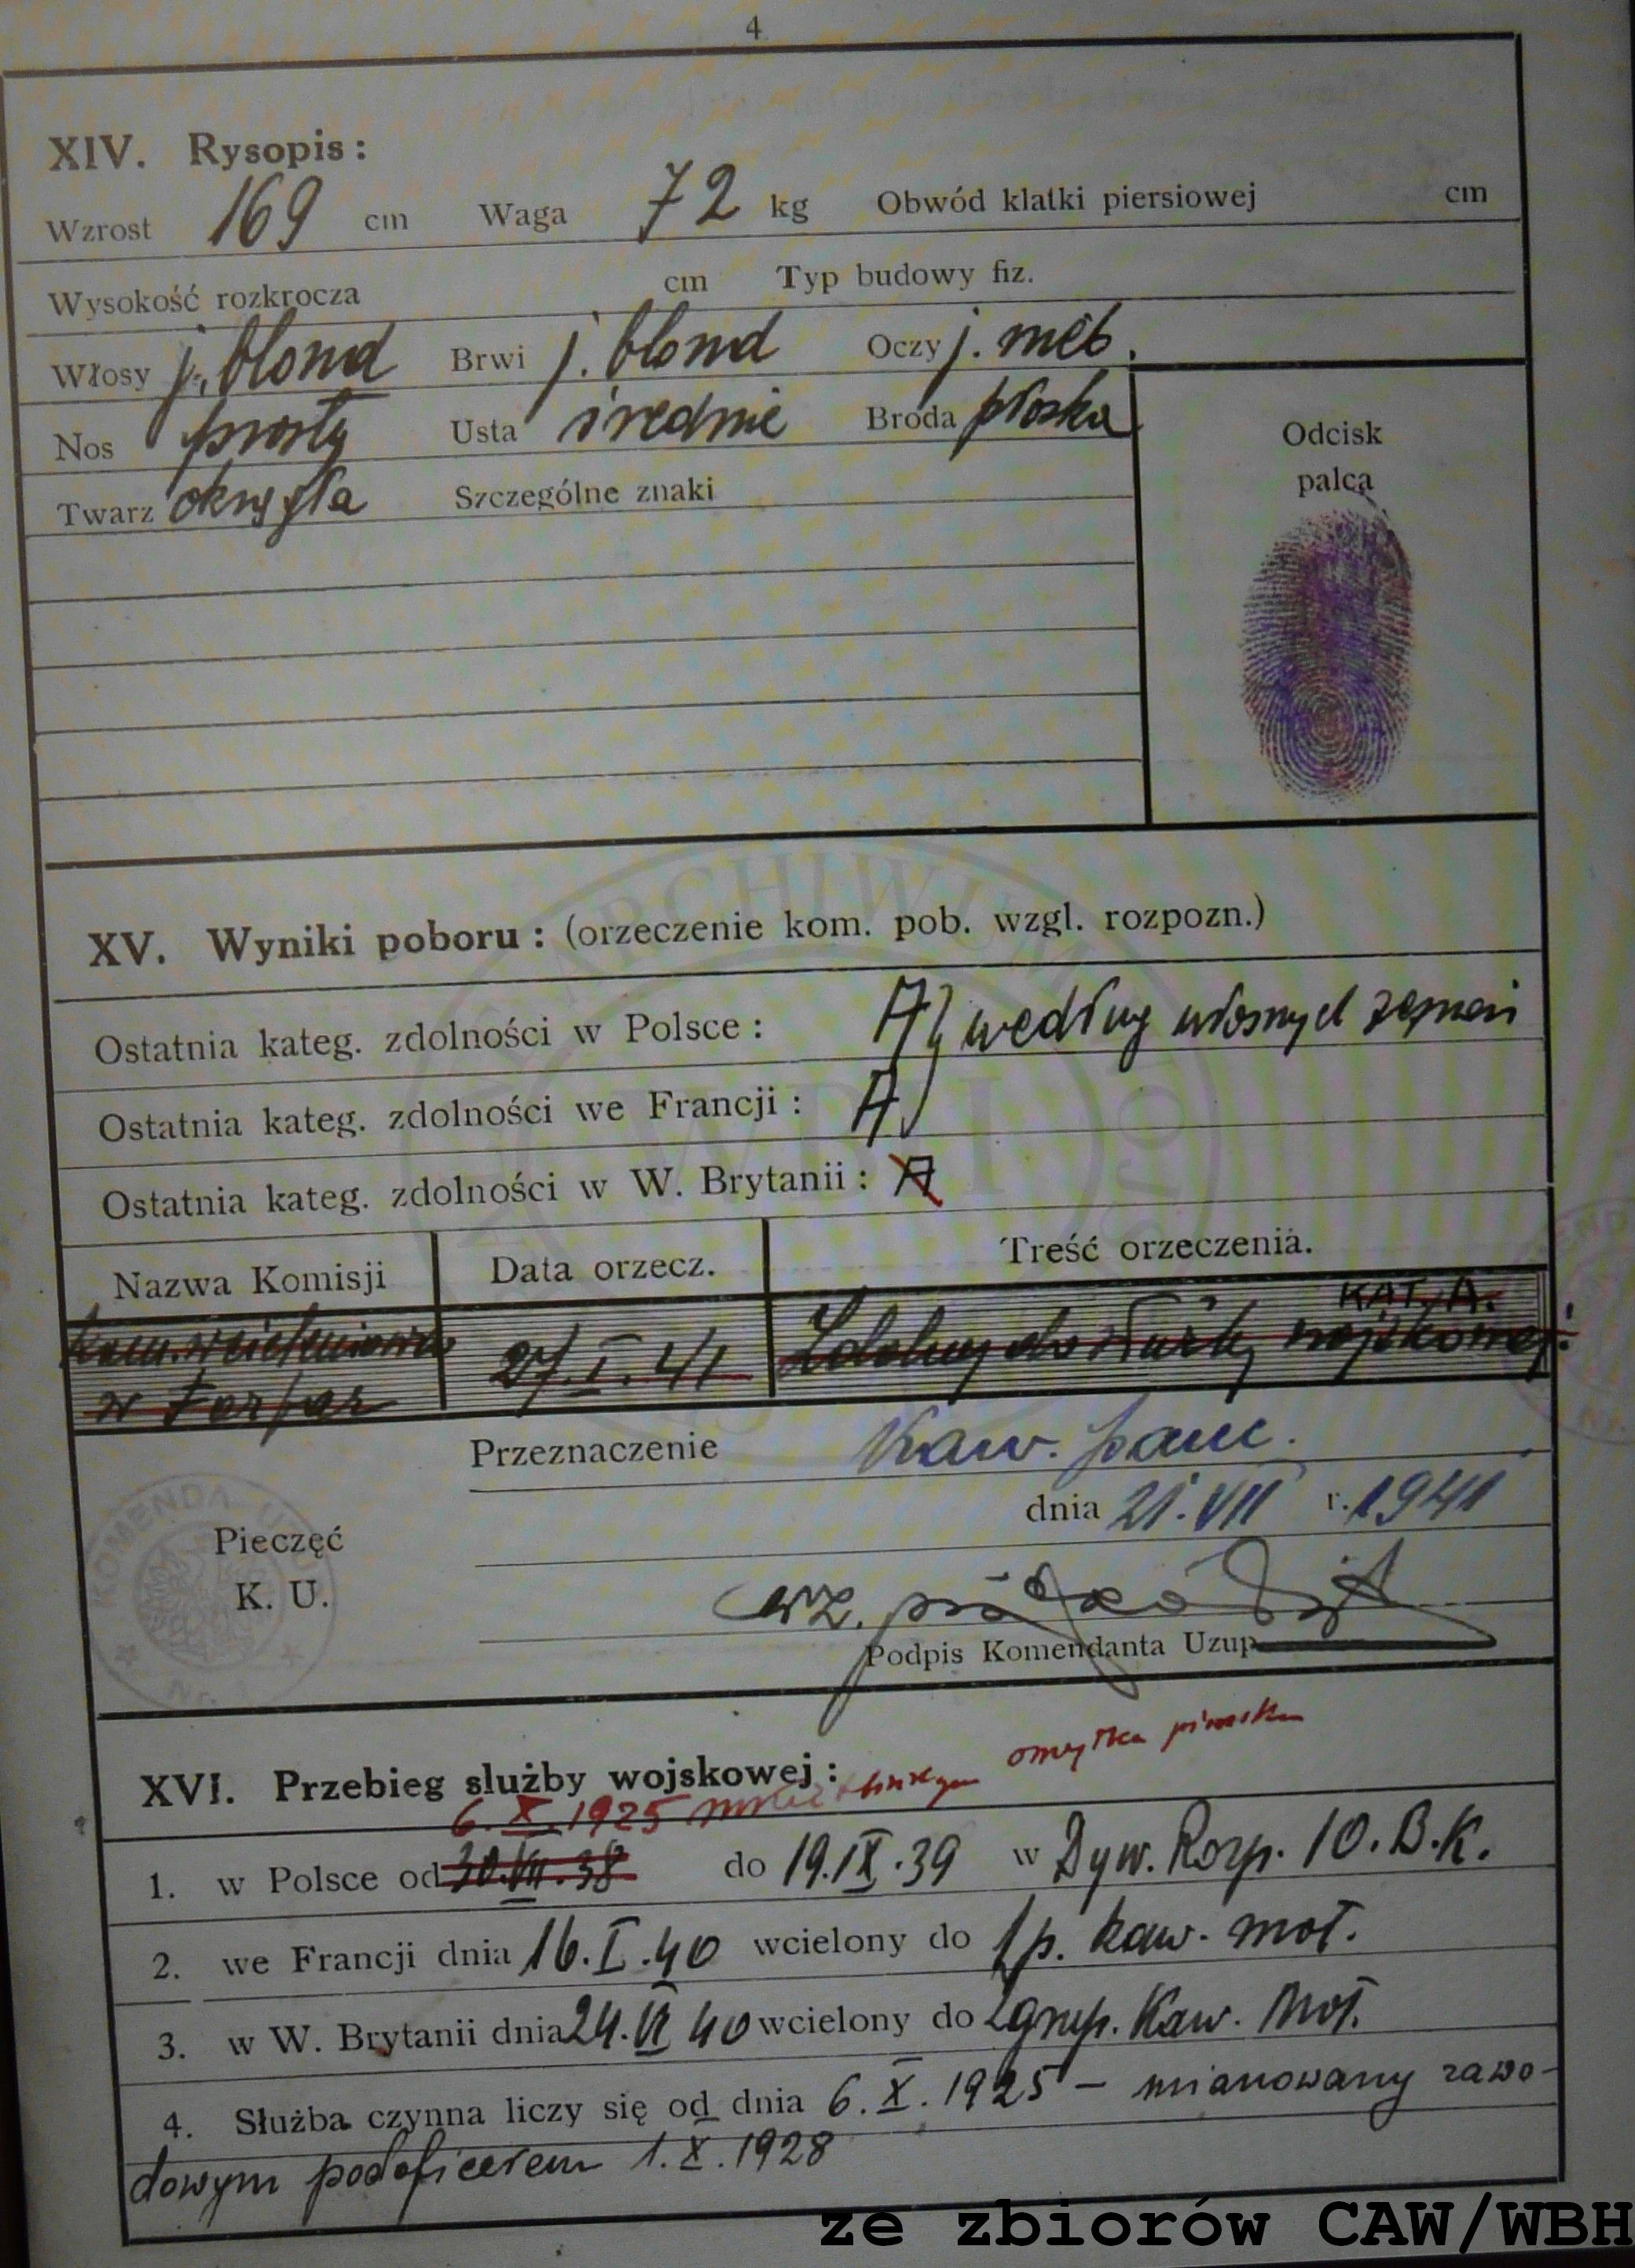 4
XIV. Rysopis:
Wzrost 169 cm Waga 72 kg Obwód klatki piersiowej cm
Wysokość rozkrocza cm Typ budowy fiz.
Włosy j. blond Brwi j. blond Oczy j. nieb.
Nos prosty Usta średnie Broda płaska
Twarz okrągła Szczególne znaki
Odcisk
palca
XV. Wyniki poboru: (orzeczenie kom. pob. wzgl. rozpozn.)
Ostatnia kateg. zdolności w Polsce: A według własnych zeznań
Ostatnia kateg. zdolności we Francji: A
Ostatnia kateg. zdolności w W. Brytanii: A
Nazwa Komisji Data orzecz. Treść orzeczenia.
KAT. A.
Kom. wcieleniowa 27.I.41 Zdolny do służby wojskowej
w Forfar
Przeznaczenie Kaw. panc.
dnia 21. VII r. 1941
Pieczęć
K. U.
wz.
Podpis Komendanta Uzup
XVI. Przebieg służby wojskowej: omyłka pisarska
6. X. 1925
1. w Polsce od 30.VII.38 do 19.IX.39 w Dyw. Rozp. 10. B.K.
2. we Francji dnia 16.I.40 wcielony do 1 p. kaw. mot.
3. w W. Brytanii dnia 24.VI 40 wcielony do 2 grup. Kaw. Mot.
4. Służba czynna liczy się od dnia 6. X. 1925 – mianowany zawo-
dowym podoficerem 1. X. 1928
ze zbiorów CAW/WBH